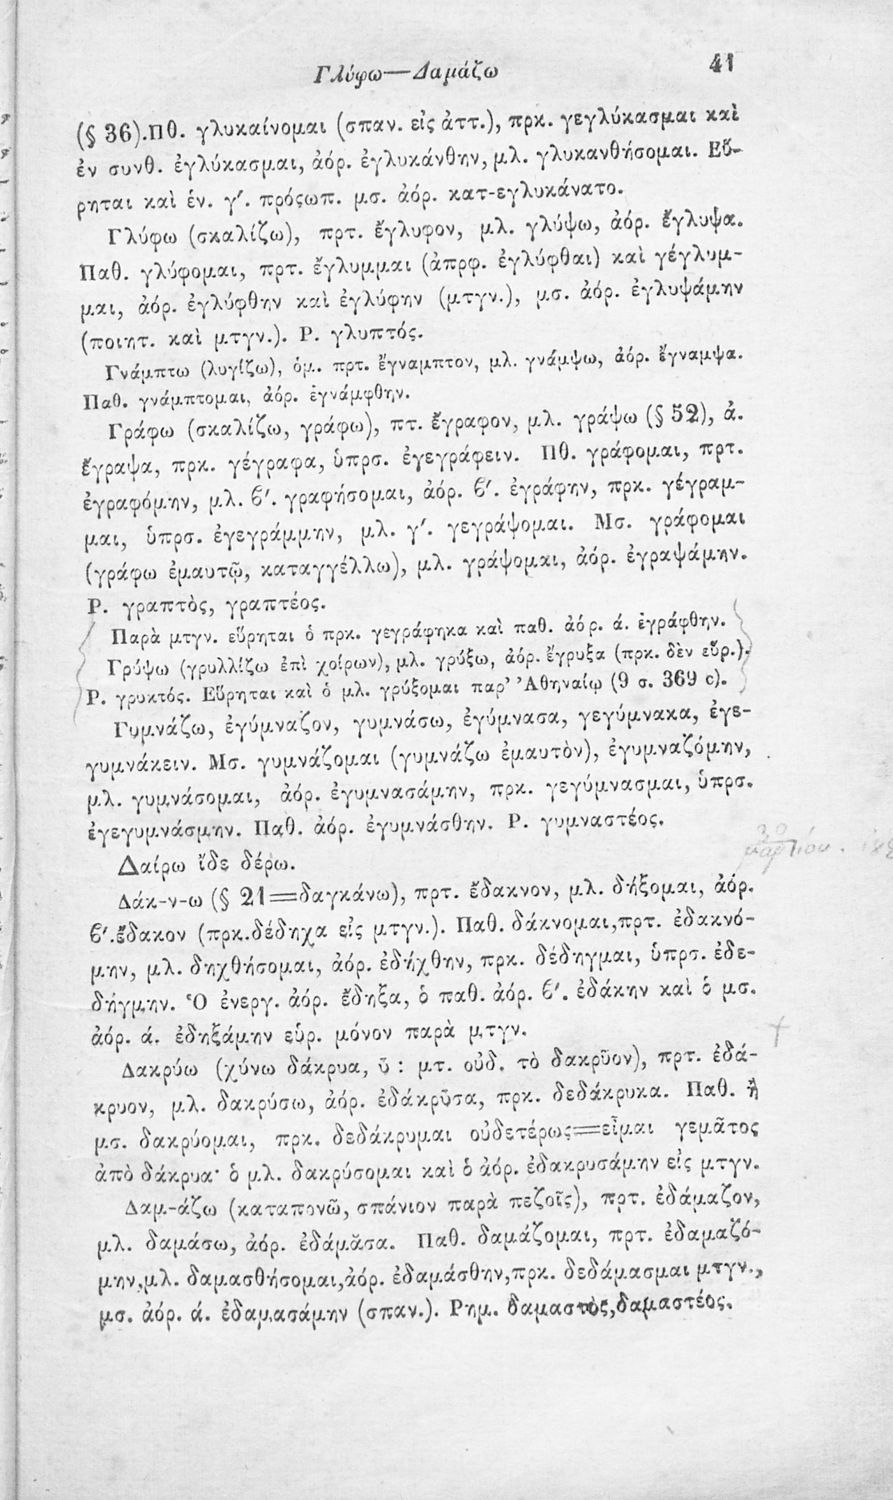 Γλύφω—Δαμάζω 41
(§ 36).Πθ. γλυκαίνομαι (σπαν. εἰς ἀττ.), πρκ. γεγλύκασμαι καὶ
ἐν συνθ. ἐγλύκασμαι, ἀόρ. ἐγλυκάνθην, μλ. γλυκανθήσομαι. Εὕ-
ρηται καὶ ἑν. γ′. πρόςωπ. μσ. ἀόρ. κατ-εγλυκάνατο.
Γλύφω (σκαλίζω), πρτ. ἔγλυφον, μλ. γλύψω, ἀόρ. ἔγλυψα.
Παθ. γλύφομαι, πρτ. ἔγλυμμαι (ἀπρφ. ἐγλύφθαι) καὶ γέγλυμ-
μαι, ἀόρ. ἐγλύφθην καὶ ἐγλύφην (μτγν.), μσ. ἀόρ. ἐγλυψάμην
(ποιητ. καὶ μτγν.). Ρ. γλυπτός.
Γνάμπτω (λυγίζω), ὁμ. πρτ. ἔγναμπτον, μλ. γνάμψω, ἀόρ. ἔγναμψα.
Παθ. γνάμπτομαι, ἀόρ. ἐγνάμφθην.
Γράφω (σκαλίζω, γράφω), πτ. ἔγραφον, μλ. γράψω (§ 52), ἀ.
ἔγραψα, πρκ. γέγραφα, ὑπρσ. ἐγεγράφειν. Πθ. γράφομαι, πρτ.
ἐγραφόμην, μλ. ϐ′. γραφήσομαι, ἀόρ. ϐ′. ἐγράφην, πρκ. γέγραμ-
μαι, ὑπρσ. ἐγεγράμμην, μλ. γ′. γεγράψομαι. Μσ. γράφομαι
(γράφω ἐμαυτῷ, καταγγέλλω), μλ. γράψομαι, ἀόρ. ἐγραψάμην.
Ρ. γραπτὸς, γραπτέος.
Παρὰ μτγν. εὕρηται ὁ πρκ. γεγράφηκα καὶ παθ. ἀόρ. ά. ἐγράφθην.
Γρύψω (γρυλλίζω ἐπὶ χοίρων), μλ. γρύξω, ἀόρ. ἔγρυξα (πρκ. δὲν εὕρ.).
Ρ. γρυκτός. Εὕρηται καὶ ὁ μλ. γρύξομαι παρ’ Ἀθηναίῳ (9 σ. 369 c).
Γυμνάζω, ἐγύμναζον, γυμνάσω, ἐγύμνασα, γεγύμνακα, ἐγε-
γυμνάκειν. Μσ. γυμνάζομαι (γυμνάζω ἐμαυτὸν), ἐγυμναζόμην,
μλ. γυμνάσομαι, ἀόρ. ἐγυμνασάμην, πρκ. γεγύμνασμαι, ὑπρσ.
ἐγεγυμνάσμην. Παθ. ἀόρ. ἐγυμνάσθην. Ρ. γυμναστέος.
Δαίρω ἴδε δέρω.
Δάκ-ν-ω (§ 21=δαγκάνω), πρτ. ἔδακνον, μλ. δήξομαι, ἀόρ.
ϐ′.ἔδακον (πρκ.δέδηχα εἰς μτγν.). Παθ. δάκνομαι,πρτ. ἐδακνό-
μην, μλ. δηχθήσομαι, ἀόρ. ἐδήχθην, πρκ. δέδηγμαι, ὑπρσ. ἐδε-
δήγμην. Ὁ ἐνεργ. ἀόρ. ἔδηξα, ὁ παθ. ἀόρ. ϐ′. ἐδάκην καὶ ὁ μσ.
ἀόρ. ά. ἐδηξάμην εὑρ. μόνον παρὰ μτγν.
Δακρύω (χύνω δάκρυα, ῡ : μτ. οὐδ. τὸ δακρῦον), πρτ. ἐδά-
κρυον, μλ. δακρύσω, ἀόρ. ἐδάκρῦσα, πρκ. δεδάκρυκα. Παθ. ἢ
μσ. δακρύομαι, πρκ. δεδάκρυμαι οὐδετέρως=εἶμαι γεμᾶτος
ἀπὸ δάκρυα· ὁ μλ. δακρύσομαι καὶ ὁ ἀόρ. ἐδακρυσάμην εἰς μτγν.
Δαμ-άζω (καταπονῶ, σπάνιον παρὰ πεζοῖς), πρτ. ἐδάμαζον,
μλ. δαμάσω, ἀόρ. ἐδάμᾰσα. Παθ. δαμάζομαι, πρτ. ἐδαμαζό-
μην,μλ. δαμασθήσομαι,ἀόρ. ἐδαμάσθην,πρκ. δεδάμασμαι μτγν.,
μσ. ἀόρ. ά. ἐδαμασάμην (σπαν.). Ρημ. δαμαστὸς,δαμαστέος.
30
μαρτίου